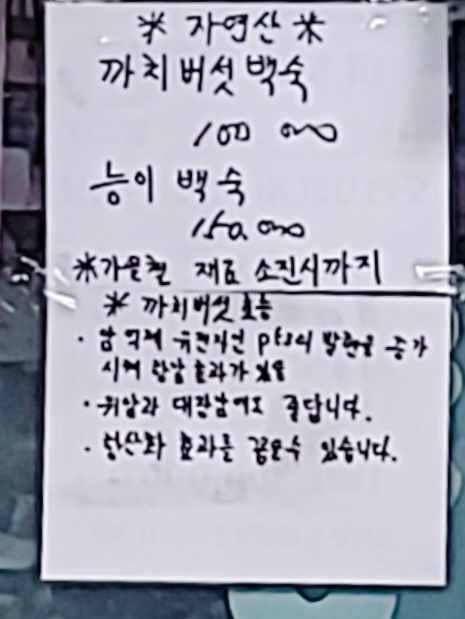 * 자연산 *
까치버섯 백숙
100 000
능이 백숙
150,000
*가을철 재료 소진시까지
* 까치버섯 효능
· 암억제 유전자인 p53의 발현을 증가
시켜 항암효과가 있음
· 위암과 대장암에도 좋답니다.
· 항산화 효과를 꼽을수 있습니다.